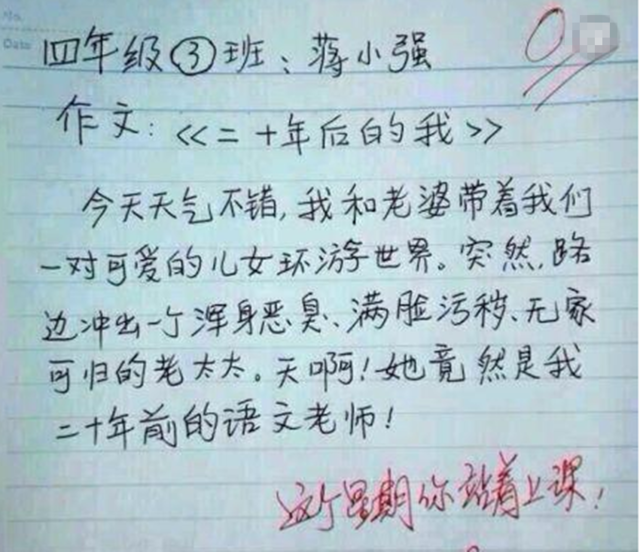 No.
Date
四年级③班：蒋小强
作文：<<二十年后的我>>
今天天气不错，我和老婆带着我们
一对可爱的儿女环游世界。突然，路
边冲出一个浑身恶臭、满脸污秽、无家
可归的老太太。天啊！她竟然是我
二十年前的语文老师！
这个星期你站着上课！